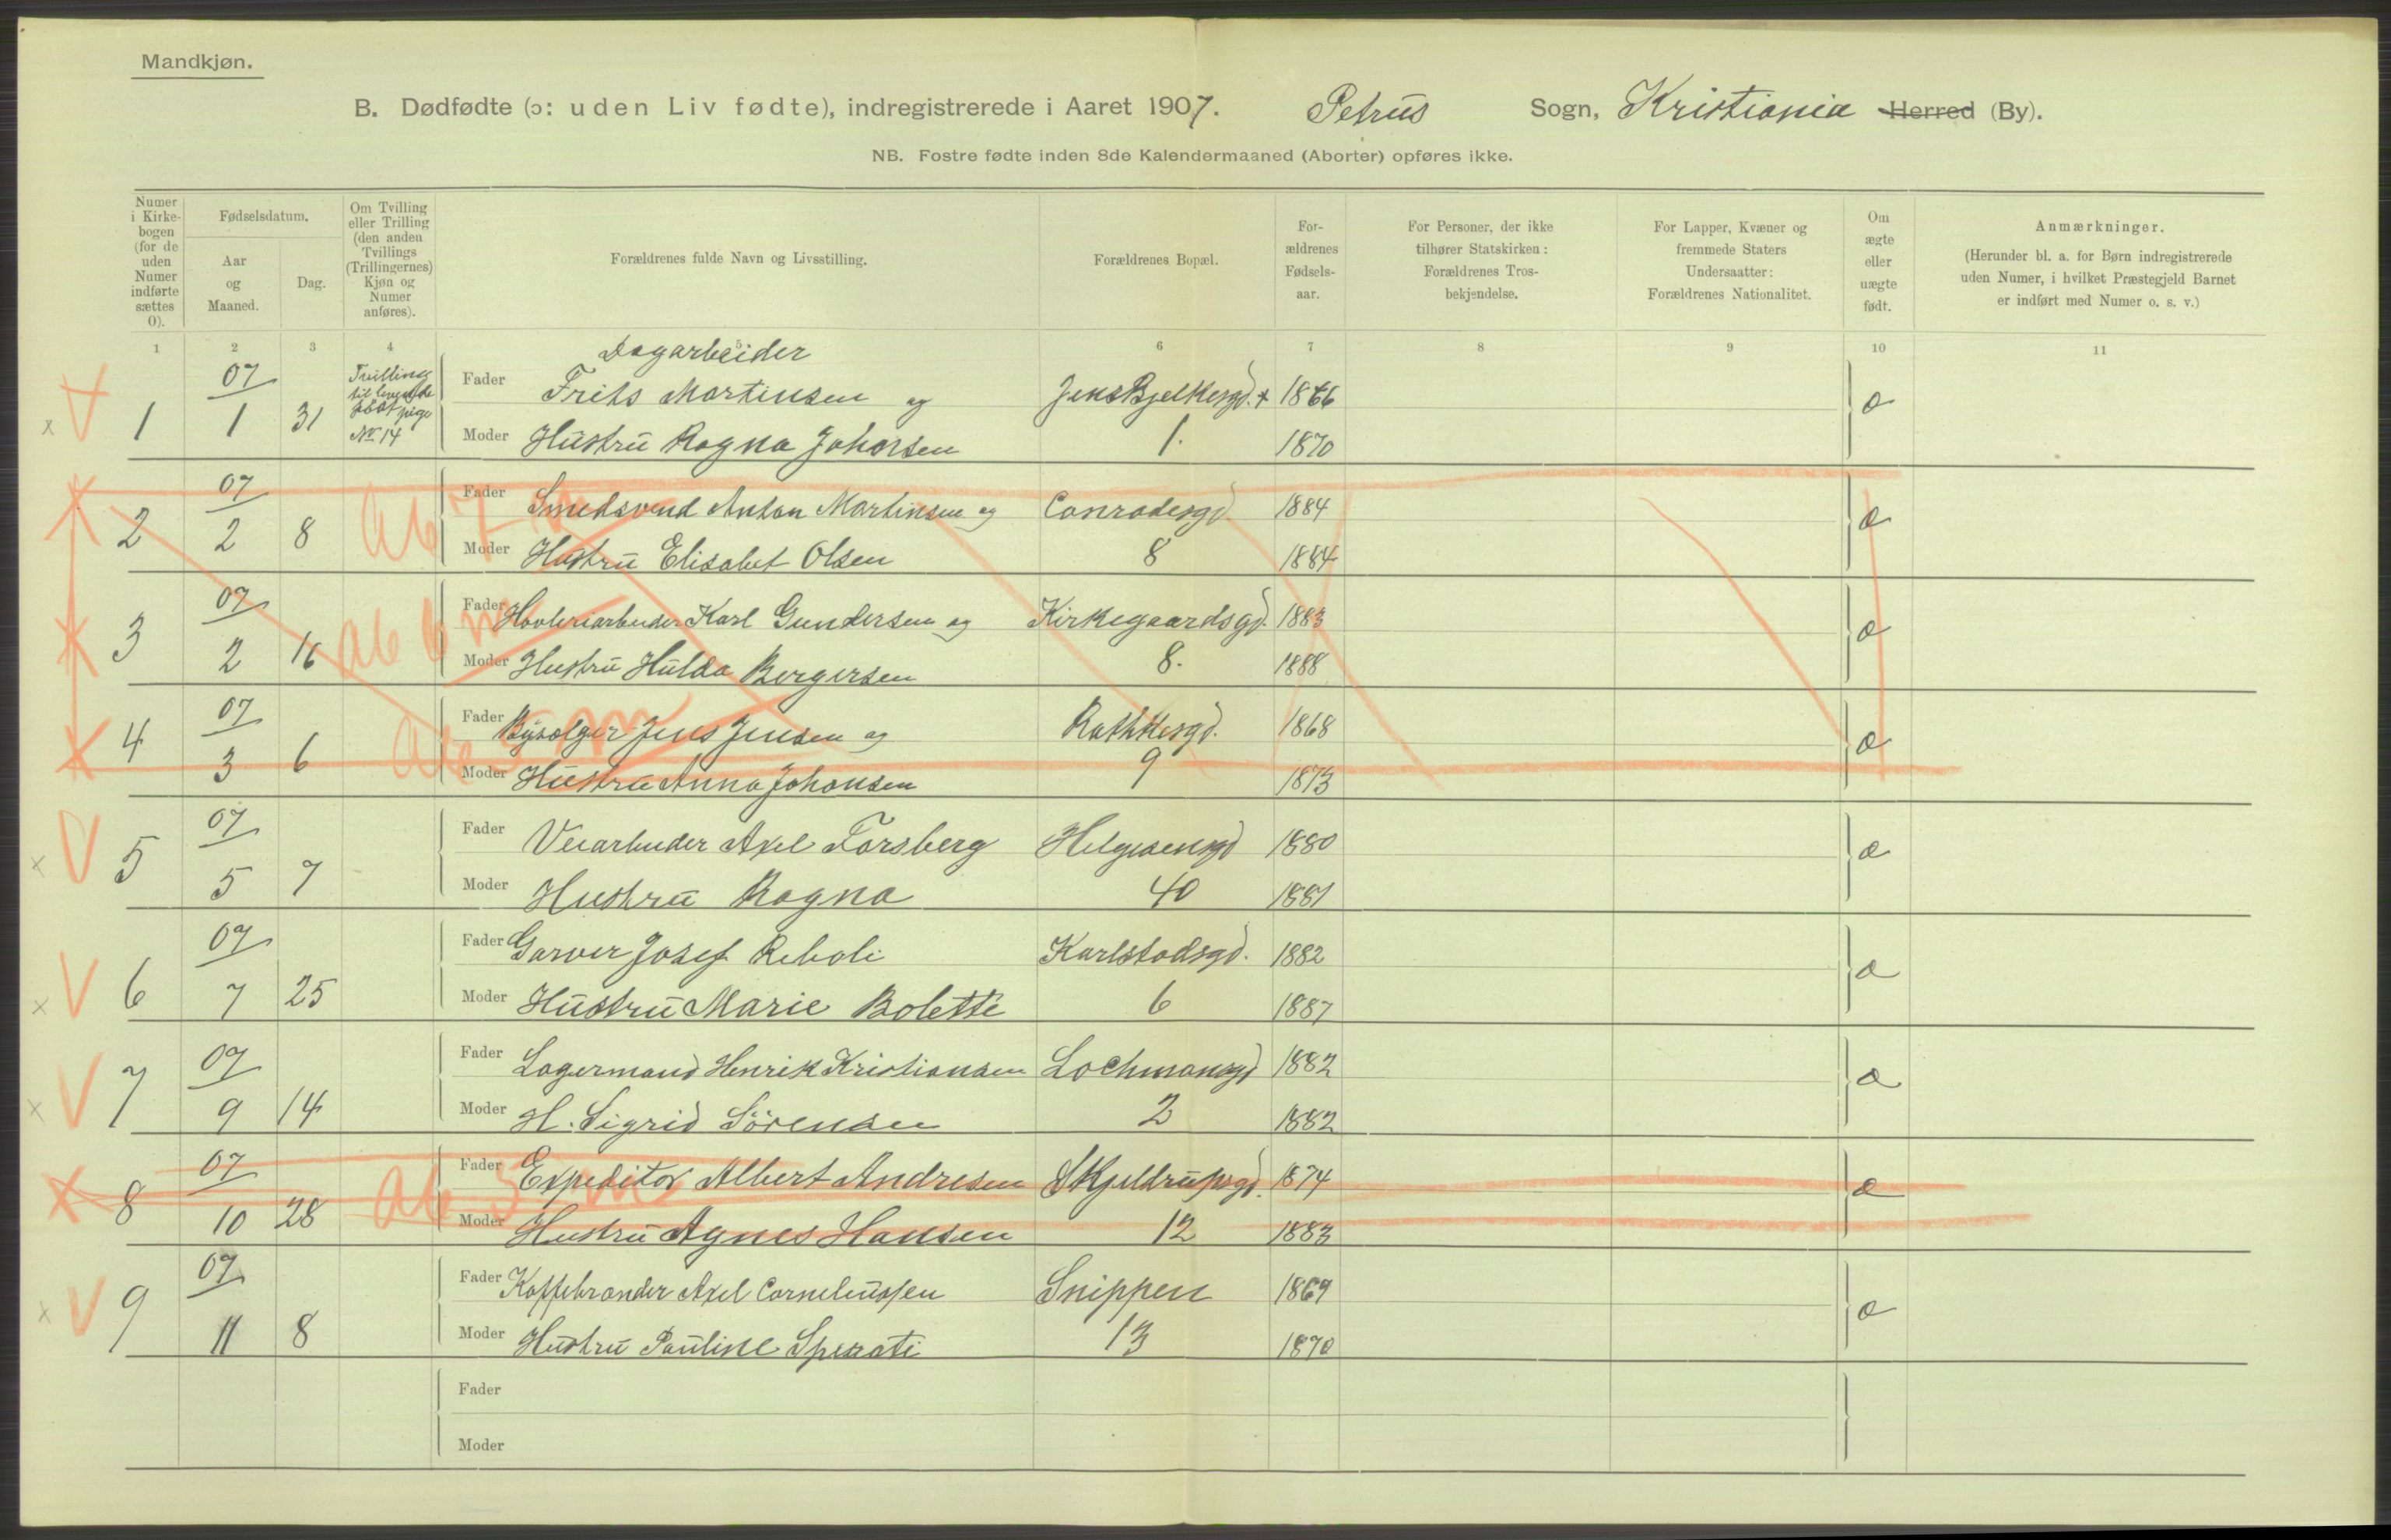 Mandkjøn.
B. Dødfødte (ɔ: uden Liv fødte), indregistrerede i Aaret 1907. Petrus Sogn, Kristiania Herred (By).
NB. Fostre fødte inden 8de Kalendermaaned (Aborter) opføres ikke.
Numer i Kirkebogen (for de uden Numer indførte sættes 0).
Fødselsdatum.
Aar og Maaned.
Dag.
Om Tvilling eller Trilling (den anden Tvillings (Trillingernes) Kjøn og Numer anføres).
Forældrenes fulde Navn og Livsstilling.
Forældrenes Bopæl.
For-ældrenes Fødsels-aar.
For Personer, der ikke tilhører Statskirken: Forældrenes Tros-bekjendelse.
For Lapper, Kvæner og fremmede Staters Undersaatter: Forældrenes Nationalitet.
Om ægte eller uægte født.
Anmærkninger.
(Herunder bl. a. for Børn indregistrerede uden Numer, i hvilket Præstegjeld Barnet er indført med Numer o. s. v.)
1 2 3 4 5 6 7 8 9 10 11
Dagarbeider
07 Tvilling til levende født pige No 14 Fader Frits Martinsen og Jens Bjelkesgd. 1866 æ
1 1 31 Moder Hustru Ragna Johansen 1. 1870
07 Fader Smedsvend Anton Martinsen og Conradesgd. 1884 æ
2 2 8 Ab 7 m Moder Hustru Elisabet Olsen 8 1884
07 Fader Høvleriarbeider Karl Gundersen og Kirkegaardsgd. 1883 æ
3 2 16 Ab 6 m Moder Hustru Hulda Bergersen 8. 1888
07 Fader Bysælger Jens Jensen og Rathkesgd. 1868 æ
4 3 6 Ab 5 m Moder Hustru Anna Johansen 9 1873
07 Fader Veiarbeider Axel Forsberg Helgesensgd 1880 æ
5 5 7 Moder Hustru Ragna 40 1881
07 Fader Garver Josef Reboli Karlstadsgd. 1882 æ
6 7 25 Moder Hustru Marie Bolette 6 1887
07 Fader Lagermand Henrik Kristiansen Lochmansgd 1882 æ
7 9 14 Moder H. Sigrid Sörensen 2 1882
07 Fader Expeditør Albert Andresen Skjeldrupsgd. 1874 æ
8 10 28 Ab 5 m Moder Hustru Agnes Hansen 12 1883
07 Fader Kaffebrænder Axel Corneliussen Snippen 1869 æ
9 11 8 Moder Hustru Pauline Sperati 13 1870
Fader
Moder